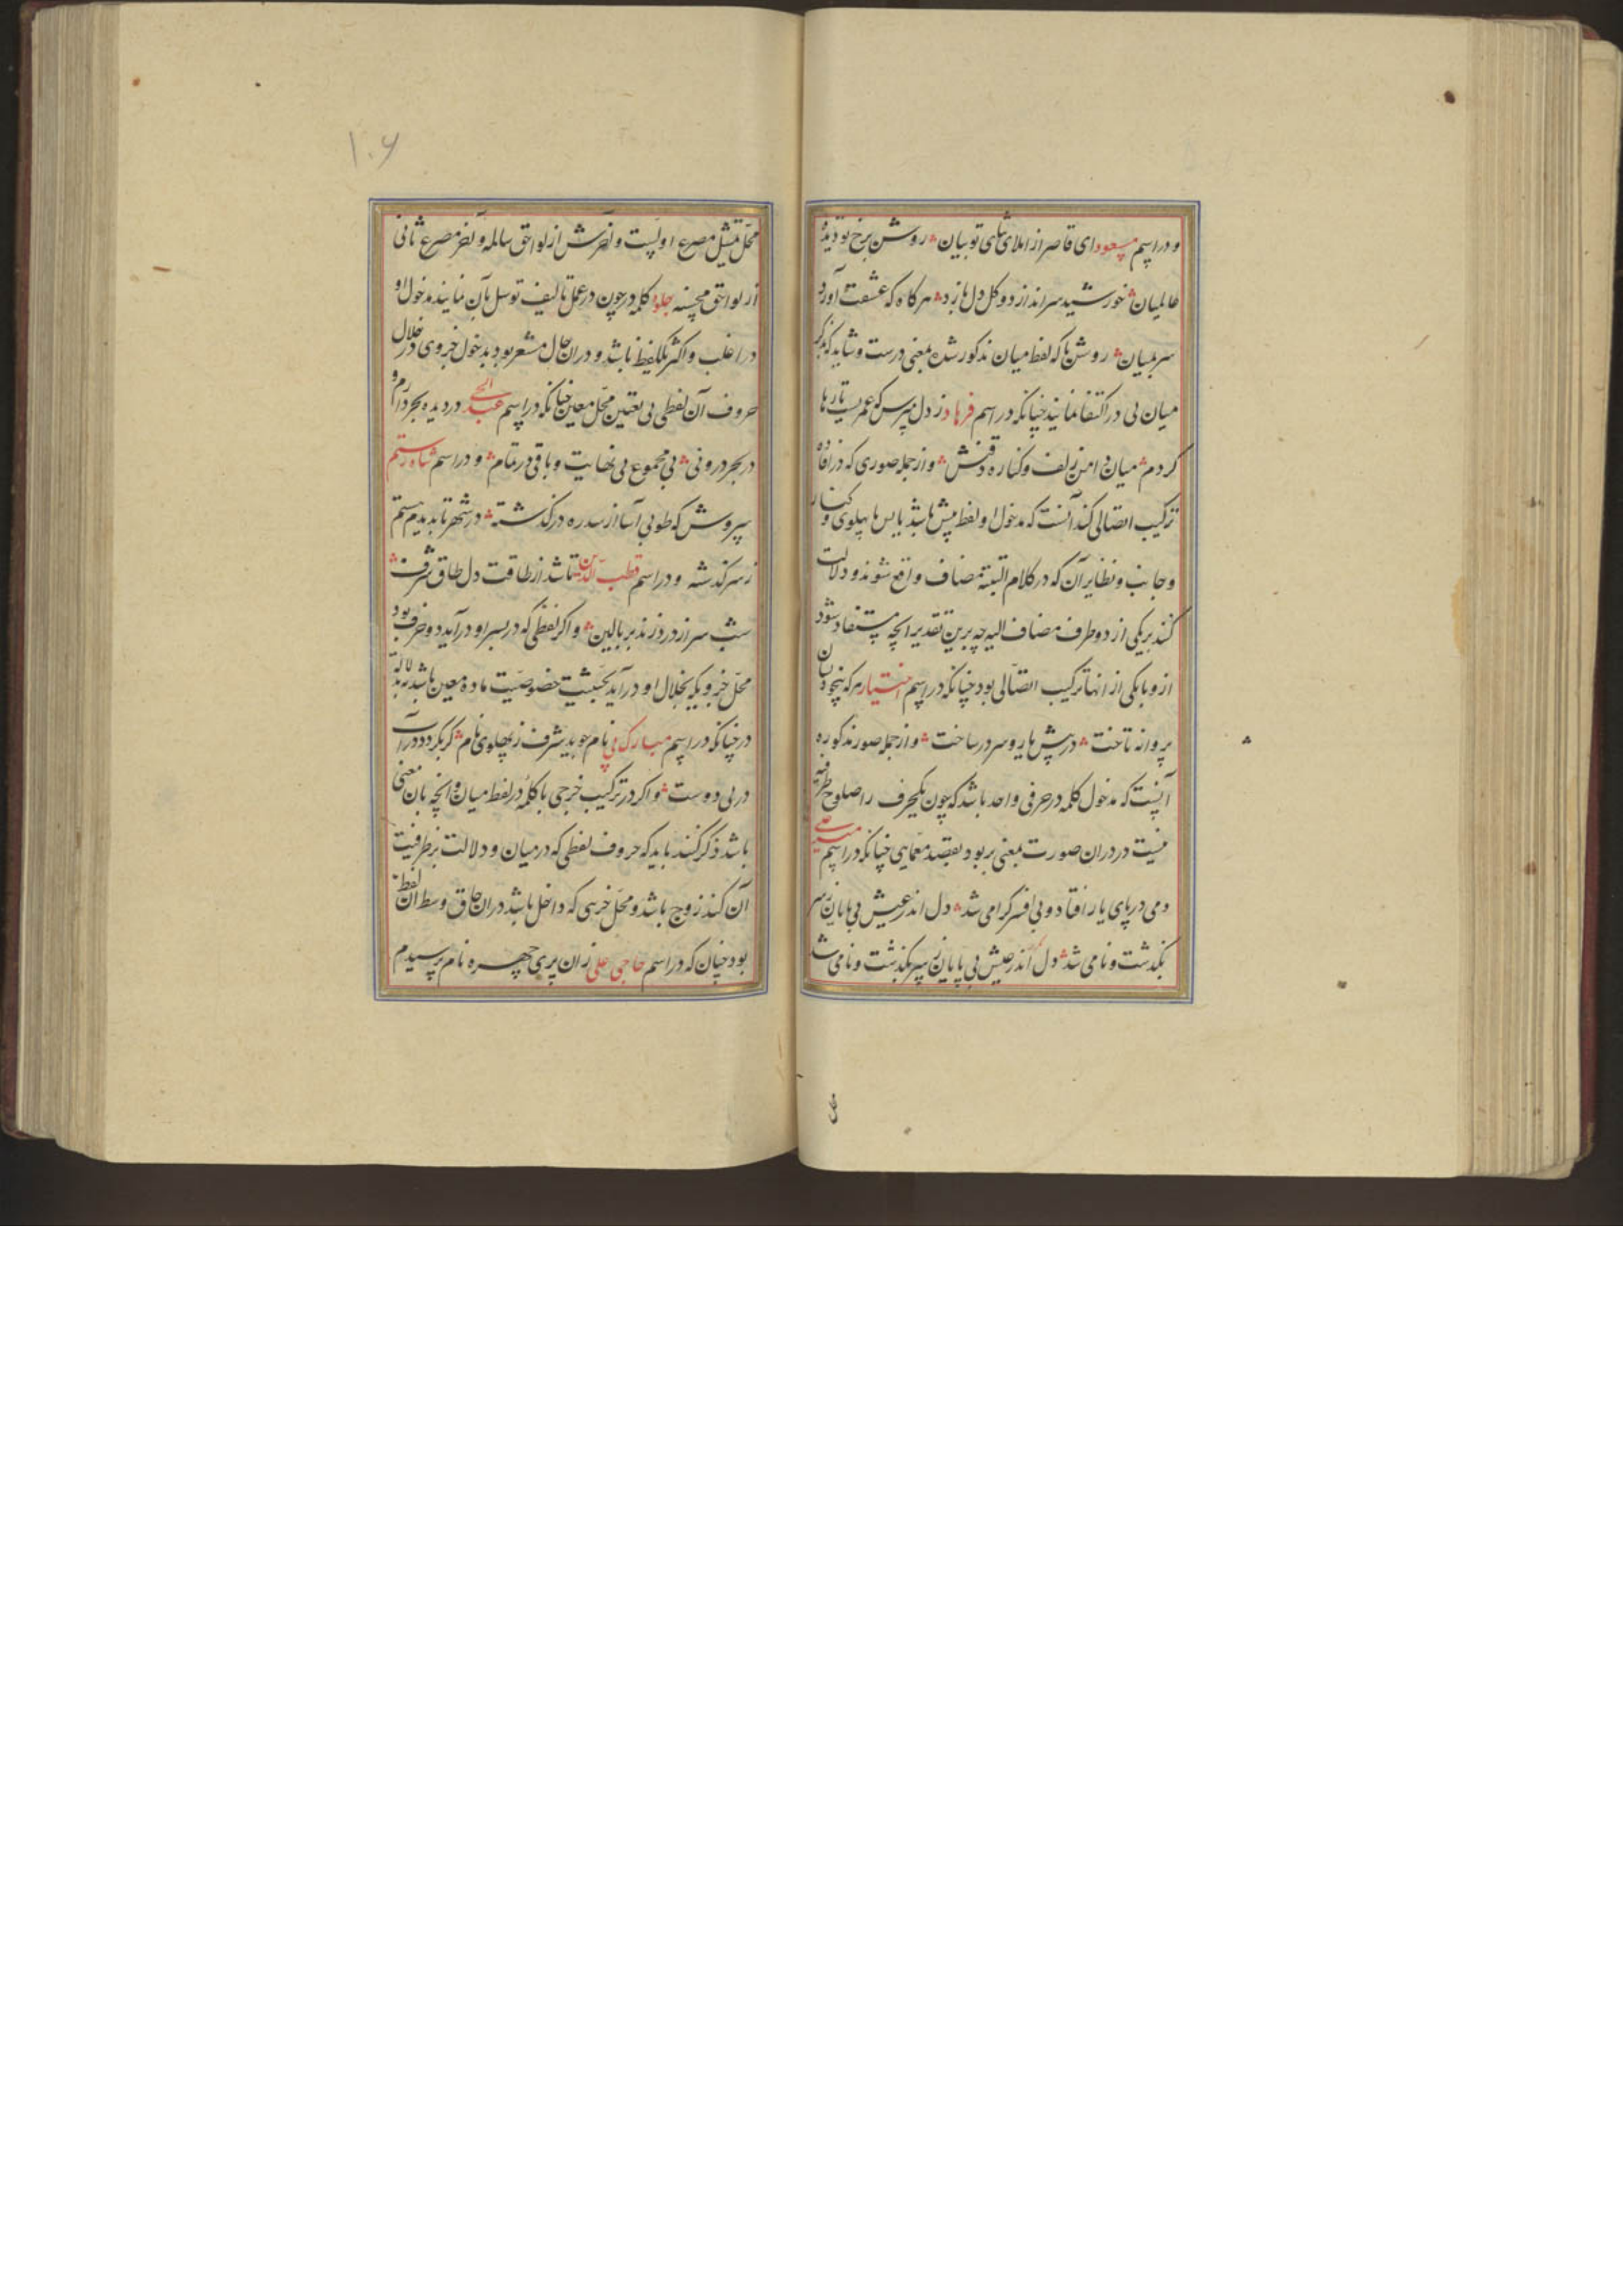 ودر اسم مسعود ای قاصر از املای ثنای تو بیان روشن برخ تو دیده
عالمیان خورشید سر انداز دو کل دل بازد هر کاه که عشقت آورد
سر بمیان روشن که لفظ میان مذکور شده بمعنی درست و شاید که بذکر
میان بی در اکتفا نمایند چنانکه در اسم فرهاد ز دل پرس که عمریست تارها
کردم میان دامن زلف و کناره وز جمله صوری که در افاده
ترکیب اتصالی کند آنست که مدخول او لفظ پیش باشد یا پس یا پهلوی و کنار
و جانب و نظایر آن که در کلام البته مضاف واقع شوند و دلالت
کند بر یکی از دو طرف مضاف الیه چه برین تقدیر انچه مستفاد شود
ازو با یکی از انها ترکیب اتصالی بود چنانکه در اسم اختیار هر که بیخودسان
پروانه تاخت در پیش یار و سر در ساخت و از جمله صور مذکوره
آنست که مدخول کلمه در حرفی واحد باشد که چون یکحرف را صلوح ظرفیه
نیست در دران صورت بمعنی بر بود بقصد معمایی چنانکه در اسم میر علی
دمی در پای یار افتاد و بی افسر کرامی شد دل اندر عیش بی پایان ز سر
بگذشت و نامی شد دل اندر عیش بی پایان ز سر بگذشت و نامی شد
۱۰۶
محل تمثیل مصرع اولست و آخرش از لواحق سالمه و آخر مصرع ثانی
از لواحق محسنه جلوه کلمه در چون در عمل تالیف توسل بآن نمایند مدخول او
در اغلب و اکثر یکلفظ باشد و دران حال مشعر بود بدخول جزوی در خلال
حروف آن لفظ بی تعیین محل معین چنانکه در اسم عبد الحی در دیده بحر دارم و
در بحر درونی بی مجموع بی نهایت و باقی در تمام و در اسم شاه رستم
سروش که طوبی آسا از سدره درگذشته در شهر تا بدیدم ستم
ز سر گذشته ودر اسم قطب الدین تا شد از طاقت دل طاق شرف
شب سر از درد زند بر بالین و اکر لفظی که در بسر او درآید دو حرف بود
محل جزویکه بخلال او درآید بحیثیت خصوصیت ماده معین باشد نه بدلالة
در چنانکه در اسم مبارک نام جوید شرف ز پهلوی نام کر بکردد درآن
در بی دوست و اکر در ترکیب خرجی با کلمه در لفظ میان و انچه بآن معنی
باشد ذکر کنند باید که حروف لفظی که در میان و دلالت بر ظرفیت
آن کند زوج باشد و محل جزیی که داخل باشد دران حاق وسط آن لفظ
بود چنان که در اسم حاجی علی زان پری چهره نام پرسیدم